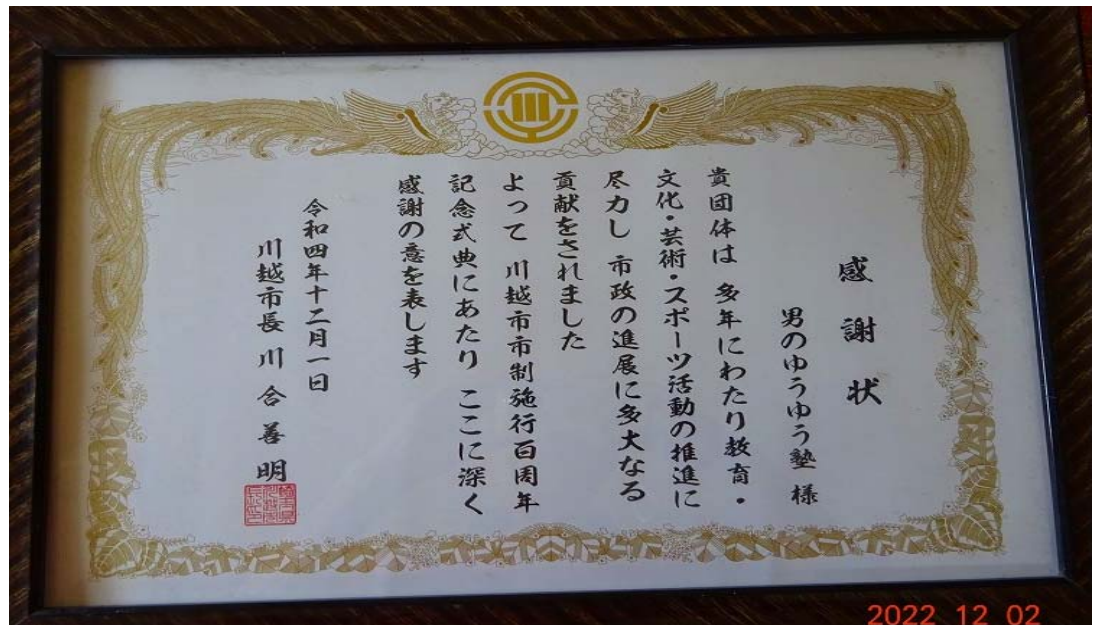 感謝状
男のゆうゆう塾 様
貴団体は 多年にわたり教育・
文化・芸術・スポーツ活動の推進に
尽力し 市政の進展に多大なる
貢献をされました
よって 川越市市制施行百周年
記念式典にあたり ここに深く
感謝の意を表します
令和四年十二月一日
川越市長 川合善明
2022 12 02